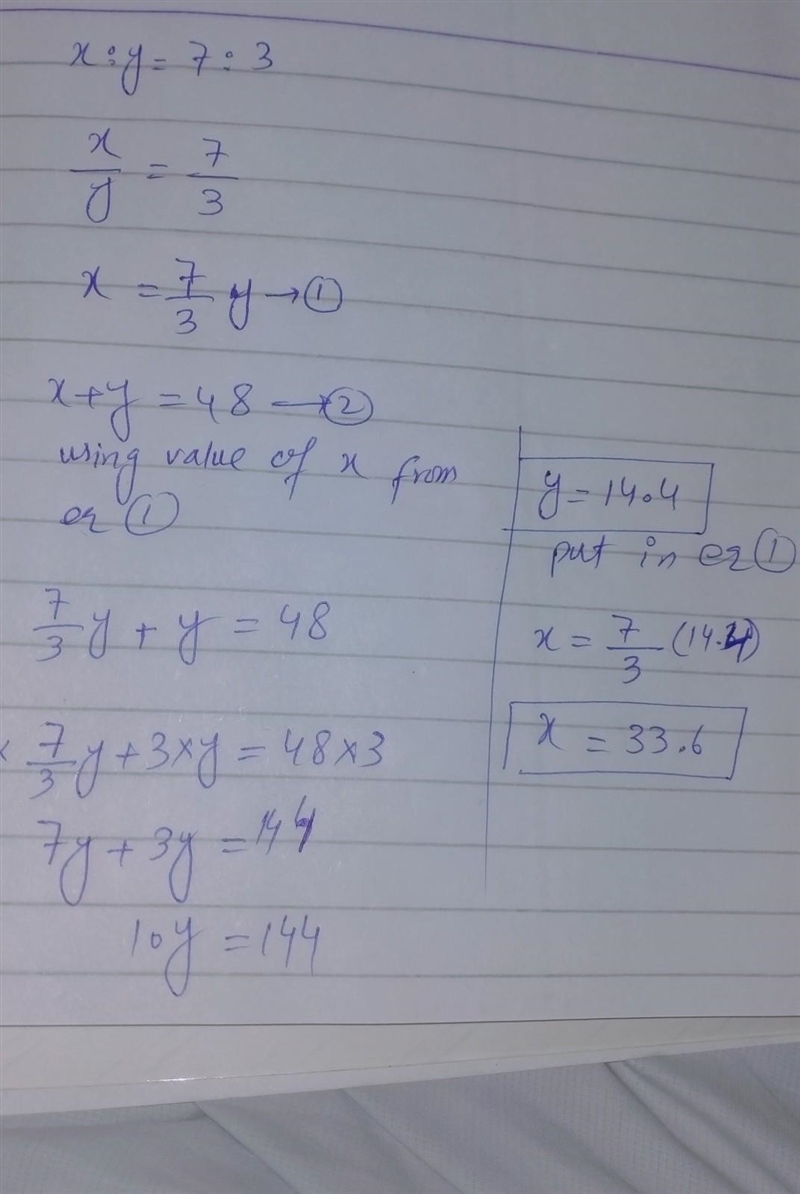 x:y = 7:3
x/y = 7/3
x = 7/3 y → ①
x+y = 48 → ②
using value of x from
eq ①
7/3 y + y = 48
× 7/3 y + 3×y = 48×3
7y + 3y = 144
10y = 144
y = 14.4
put in eq ①
x = 7/3 (14.4)
x = 33.6